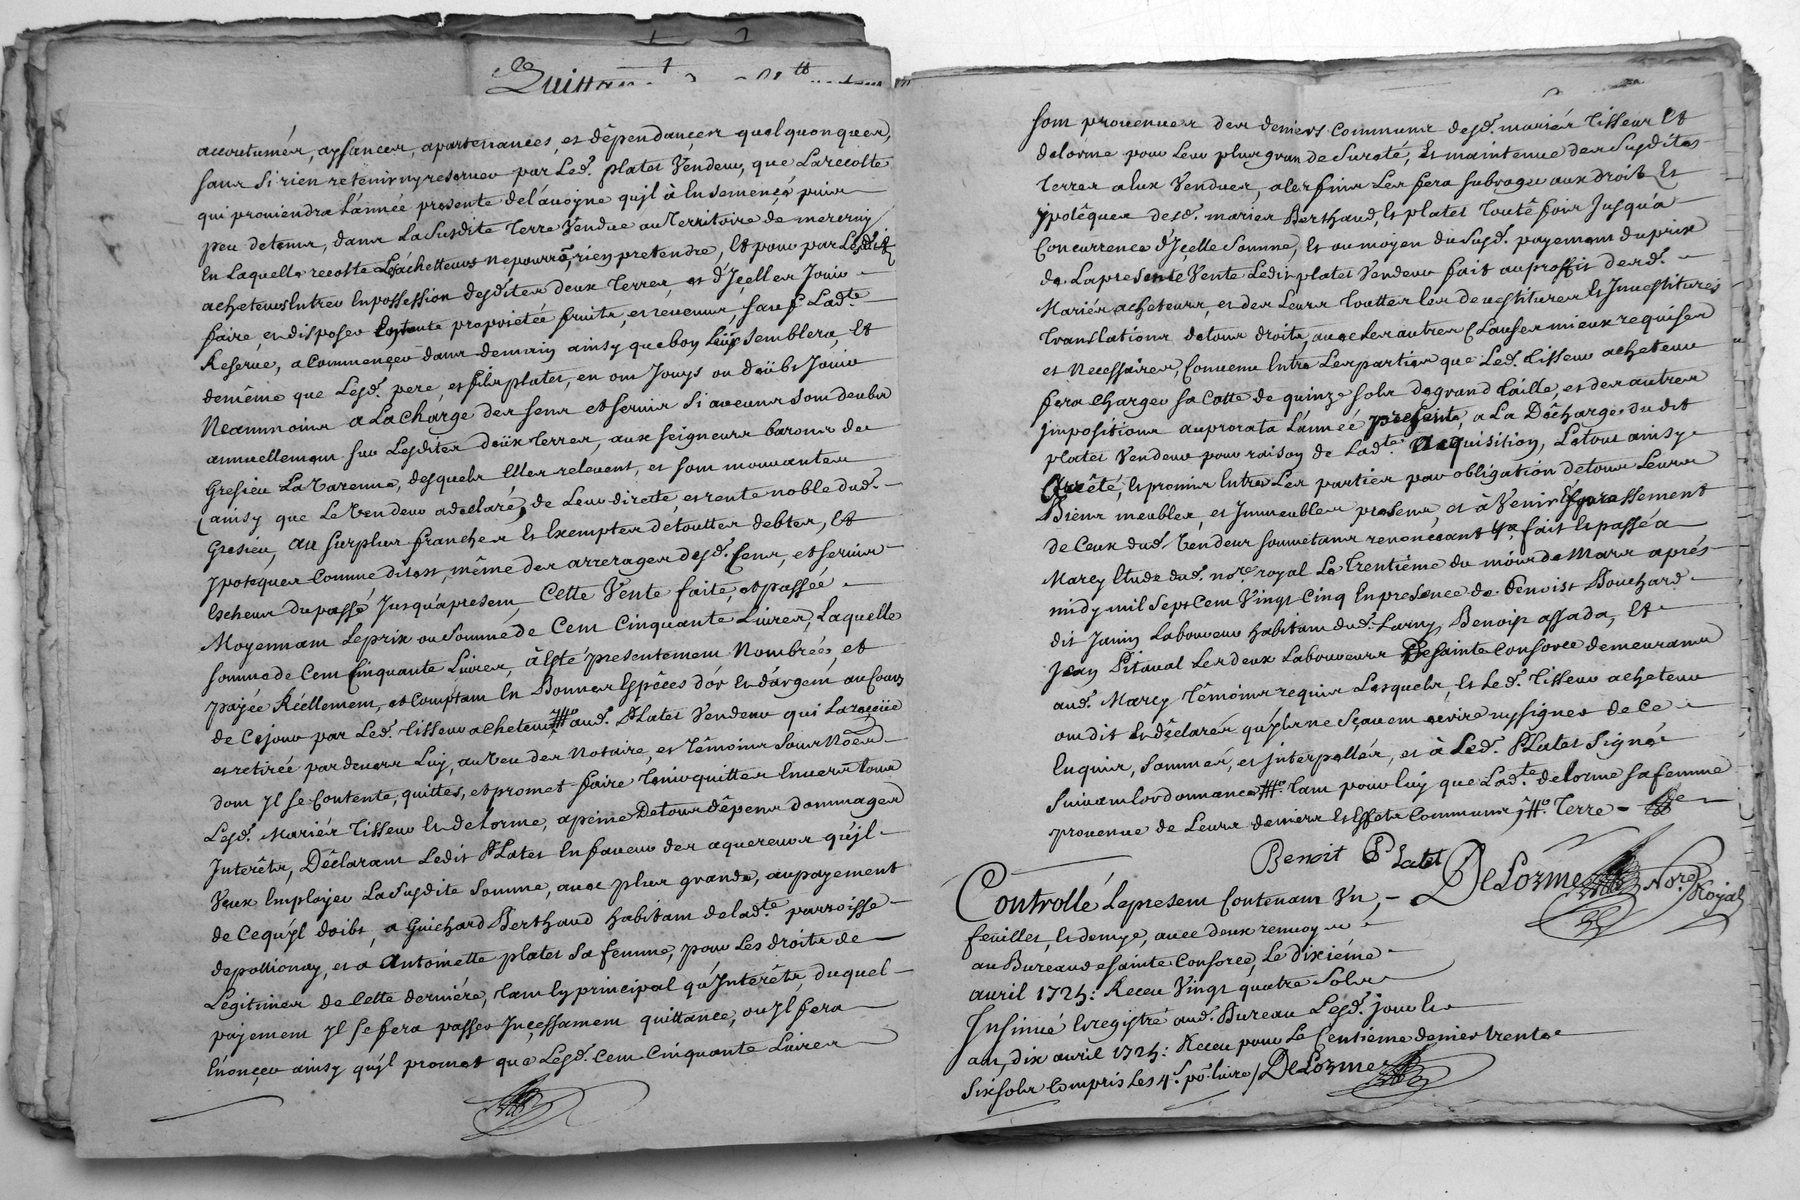 Quittan
accoutumés, aysances, apartenances, et dêpendançes quelquonques,
sans si rien retenir ny reserver par Led. platet Vendeur, que La recolte
qui proviendra L'année presente de l'avoyne qu'jl à Ensemencé puis
peu de tems, dans La Susdite Terre Vendue au Territoire de
En Laquelle recolte Les achetteurs ne pourrõ, rien pretendre, Et pour par Lesdits
acheteurs Entrer En possession desdites deux Terres, et d'Jçelles Jouir
faire, et disposer En toute proprietée fruits, et revenus, sauf Lad.te
Reserve, a Commençer dans demain ainsy que bon Leur Semblera, Et
demême que Lesd. pere, et fils platet, en ont Jouys ou deübt Jouir
Neanmoins a La Charge des sens et servis si aucuns sont deubs
annuellement sur Lesdites deüx Terres, aux seigneurs barons de
Gresieu La Varenne, desquels Elles relevent, et sont mouvantes
(ainsy que Le Vendeur a declaré, de Leur directe, et rente noble dud.
Gresieu, au surplus franches Et Exemptes de toutes debtes, Et
ypoteques Comme dit est, même des arrerages desd. Cens, et servis
Escheus du passé Jusqu'apresent, Cette Vente faite, et passée
Moyennant Le prix ou Somme de Cent Cinquante Livres, Laquelle
somme de Cent Cinquante Livres, à Esté presentement Nombrée, et
payée Réellement, et Comptant En Bonnes Espêces d'or et d'argent au Cours
de Ce jour par Led. Tisseur acheteur aud. Platet Vendeur qui La reçeüe
et retirée par devers Luy, au Veu des Notaire, et Têmoins sous Nõés
dont Jl se Contente, quitte, et promet faire Tenir quittes Envers tous
Lesd. Mariés Tisseur Et deLorme, a peine De tous dêpens dommages
Interêts, Dêclarant Ledit Platet En faveur des aquereurs qu'jl
Veux Employer La Susdite Somme, avec plus grande, au payement
de Ce qu'jl doibt, a Guichard Berthaud habitant de lad.te parroisse
de pollionay, et a Antoinette platet sa femme, pour Les droits de
Légitimes de Cette derniére, Tant En principal qu'Jnterêts, duquel
payement Jl se fera passer Jnçessament quittance, ou Jl fera
Enonçer ainsy qu'jl promet que Lesd. Cent Cinquante Livres
sont provenues des deniers Communs desd. mariés Tisseur Et
delorme pour Leur plus grande Sureté, Et maintenue des Susdites
Terres a Eux Vendues, a Ces fins Les fera subroger aux droits Et
ypotêques desd. mariés Berthaud, Et platet Toutêfois Jusqu'a
Concurrence d'Jçelle Somme, Et au moyen du Susd. payement du prix
de La presente Vente Ledit platet Vendeur fait au proffit desd.
Mariés acheteurs, et des Leurs Touttes Les devestitures Et Jnvestitures
Translations de tous droits, avec Les autres Clauses mieux requises
et Necessaires, Convenu Entre Les parties que Led. Tisseur acheteur
sera Charger sa Cotte de quinze sols de grand Taille, et des autres
Jmpositions au prorata L'année presente, a La Dêcharge du dit
platet Vendeur pour raison de Lad.te Acquisition, Le tout ainsy
Arrêté, Et promis Entre Les parties par obligation de tous Leurs
Biens meubles, et Jmmeubles presens, et à Venir Expressement
de Ceux dud. Vendeur soumetans renonceant Ya. fait Et passé a
Marcy Etude dud. no.re royal Le Trentiéme du mois de Mars aprés
midy mil Sept Cent Vingt Cinq En presence de Benoist Bouchard
dit Janin Laboureur habitant dud. Larny, Benoist assada, Et
Jean Pitaval Les deux Laboureurs De Sainte Consorce demeurants
aud. Marcy Têmoins requis Lesquels, Et Led. Tisseur acheteur
ont dit Et dêclarés qu'jls ne Sçavent êcrire ny signer de Ce
Enquis, Sommés, et Jnterpellés, et à Led. Platet Signé
suivant Lordonnance Tant pour luy que Lad.te delorme sa femme
provenue de Leurs deniers Et Effets Communs Terre
Benoit Platet DeLorme No.re Royal
Controllé Le present Contenant Un,
feuillet, Et demye, avec deux renvoy
au Bureau de Sainte Consorce, Le dixiéme
avril 1725: Receu Vingt quatre Sols
Jnsinué Enregistré aud. Bureau Lesd. jour Et
an, dix avril 1725: Receu pour Le Centième denier trente
six sols Compris Les 4.s po.r livre / DeLorme